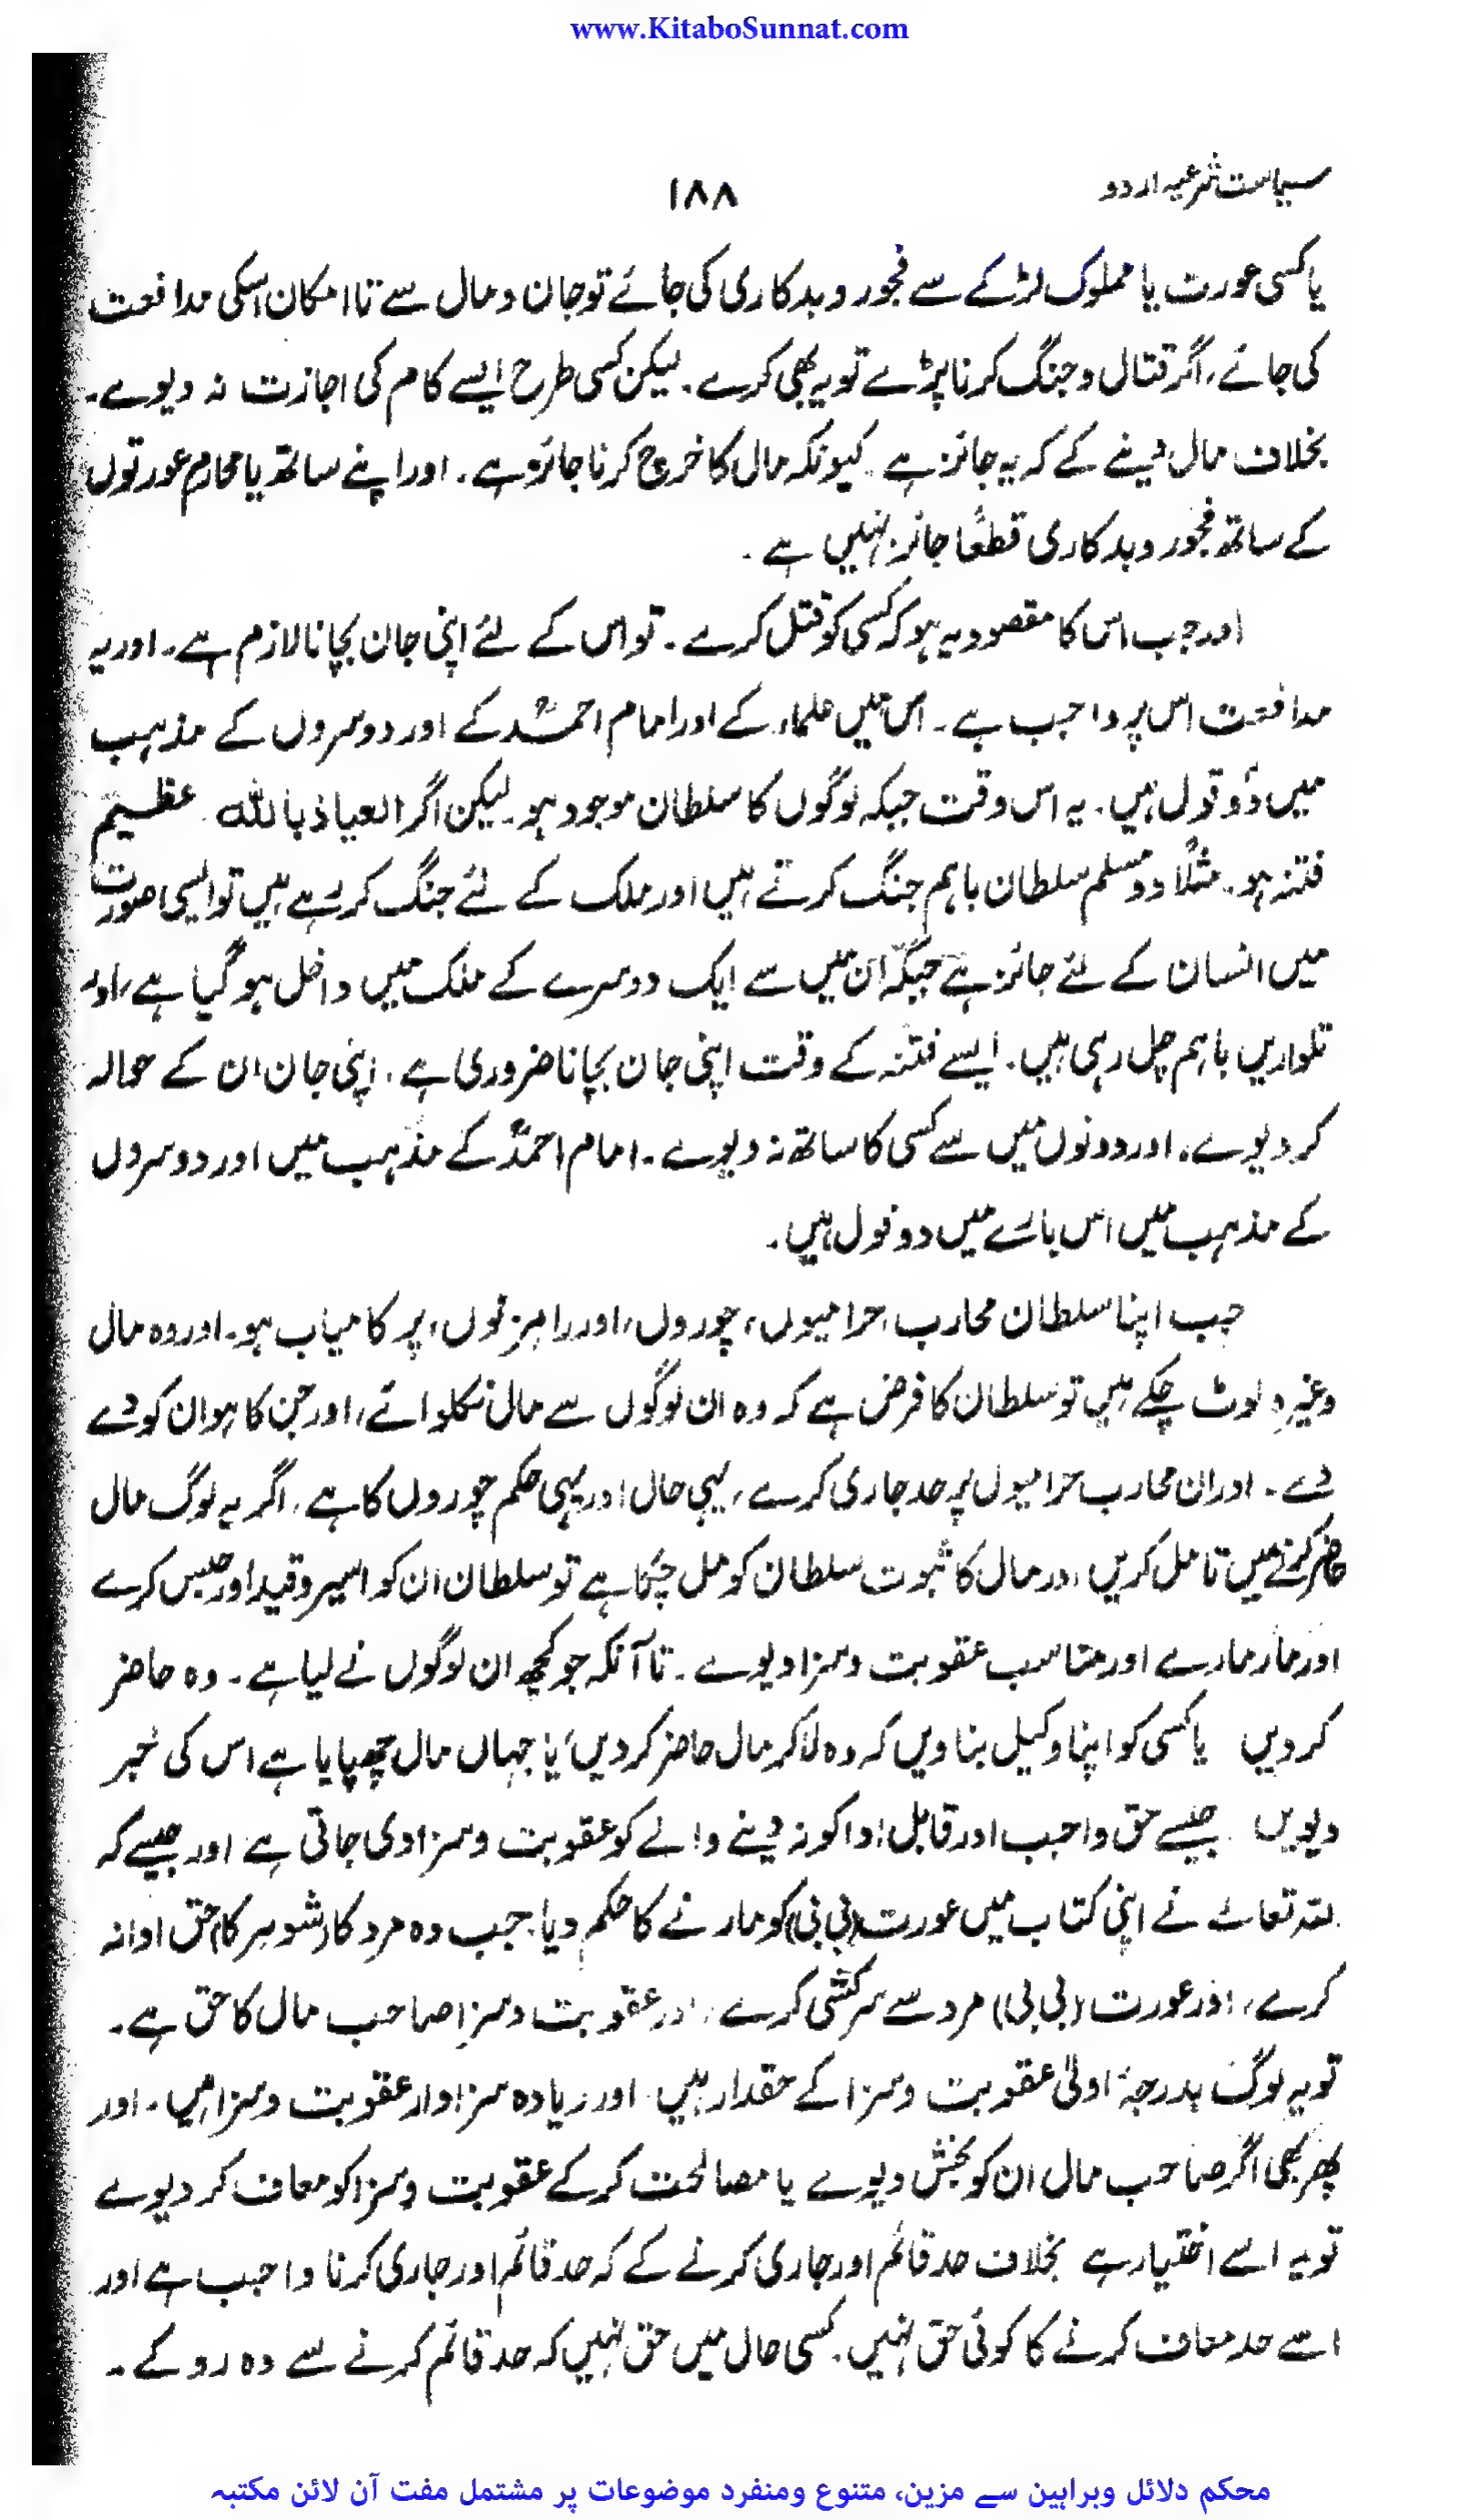 www.KitaboSunnat.com
سیاست شرعیہ اردو
۱۸۸
یا کسی عورت یا مملوک لڑکے سے فجور و بدکاری کی جائے تو جان و مال سے تا امکان اسکی مدافعت
کی جائے، اگر قتال و جنگ کرنا پڑے تو یہ بھی کرے۔ لیکن کسی طرح ایسے کام کی اجازت نہ دیوے۔
بخلاف مال دینے کے کہ یہ جائز ہے۔ کیونکہ مال کا خرچ کرنا جائز ہے۔ اور اپنے ساتھ یا محارم عورتوں
کے ساتھ فجور و بدکاری قطعًا جائز نہیں ہے۔
اور جب اس کا مقصود یہ ہو کہ کسی کو قتل کرے۔ تو اس کے لئے اپنی جان بچانا لازم ہے۔ اور یہ
مدافعت اس پر واجب ہے۔ اس میں علماء کے اور امام احمدؒ کے اور دوسروں کے مذہب
میں دو قول ہیں۔ یہ اس وقت جبکہ لوگوں کا سلطان موجود ہو۔ لیکن اگر العیاذ باللہ عظیم
فتنہ ہو۔ مثلًا دو مسلم سلطان باہم جنگ کرتے ہیں اور ملک کے لئے جنگ کر رہے ہیں تو ایسی صورت
میں انسان کے لئے جائز ہے جبکہ ان میں سے ایک دوسرے کے ملک میں داخل ہو گیا ہے، اور
تلواریں باہم چل رہی ہیں۔ ایسے فتنہ کے وقت اپنی جان بچانا ضروری ہے۔ اپنی جان ان کے حوالہ
کر دیوے، اور دونوں میں سے کسی کا ساتھ نہ دیوے۔ امام احمدؒ کے مذہب میں اور دوسروں
کے مذہب میں اس بارے میں دو قول ہیں۔
جب اپنا سلطان محارب حرامیوں، چوروں، اور راہزنوں، پر کامیاب ہو۔ اور وہ مال
وغیرہ لوٹ چکے ہیں تو سلطان کا فرض ہے کہ وہ ان لوگوں سے مال نکلوائے، اور جن کا ہو ان کو دے
دے۔ اور ان محارب حرامیوں پر حد جاری کرے، یہی حال اور یہی حکم چوروں کا ہے، اگر یہ لوگ مال
حاضر کرنے میں تامل کریں اور مال کا ثبوت سلطان کو مل چکا ہے تو سلطان ان کو اسیر و قید اور حبس کرے
اور مار مارے اور مناسب عقوبت و سزا دیوے۔ تا آنکہ جو کچھ ان لوگوں نے لیا ہے۔ وہ حاضر
کر دیں یا کسی کو اپنا وکیل بنا ویں کہ وہ لا کر مال حاضر کر دیں یا جہاں مال چھپایا ہے اس کی خبر
دیویں جیسے حق واجب اور قابل ادا کو نہ دینے والے کو عقوبت و سزا دی جاتی ہے اور جیسے کہ
اللہ تعالے نے اپنی کتاب میں عورت (بی بی) کو مارنے کا حکم دیا۔ جب وہ مرد کا (شوہر کا) حق ادا نہ
کرے، اور عورت (بی بی) مرد سے سرکشی کرے، اور عقوبت و سزا صاحب مال کا حق ہے۔
تو یہ لوگ بدرجۂ اولیٰ عقوبت و سزا کے حقدار ہیں اور زیادہ سزاوار عقوبت و سزا ہیں۔ اور
پھر بھی اگر صاحب مال ان کو بخش دیوے یا مصالحت کر کے عقوبت و سزا کو معاف کر دیوے
تو یہ اسے اختیار ہے بخلاف حد قائم اور جاری کرنے کے کہ حد قائم اور جاری کرنا واجب ہے اور
اسے حد معاف کرنے کا کوئی حق نہیں۔ کسی حال میں حق نہیں کہ حد قائم کرنے سے وہ روکے۔
محکم دلائل وبراہین سے مزین، متنوع ومنفرد موضوعات پر مشتمل مفت آن لائن مکتبہ